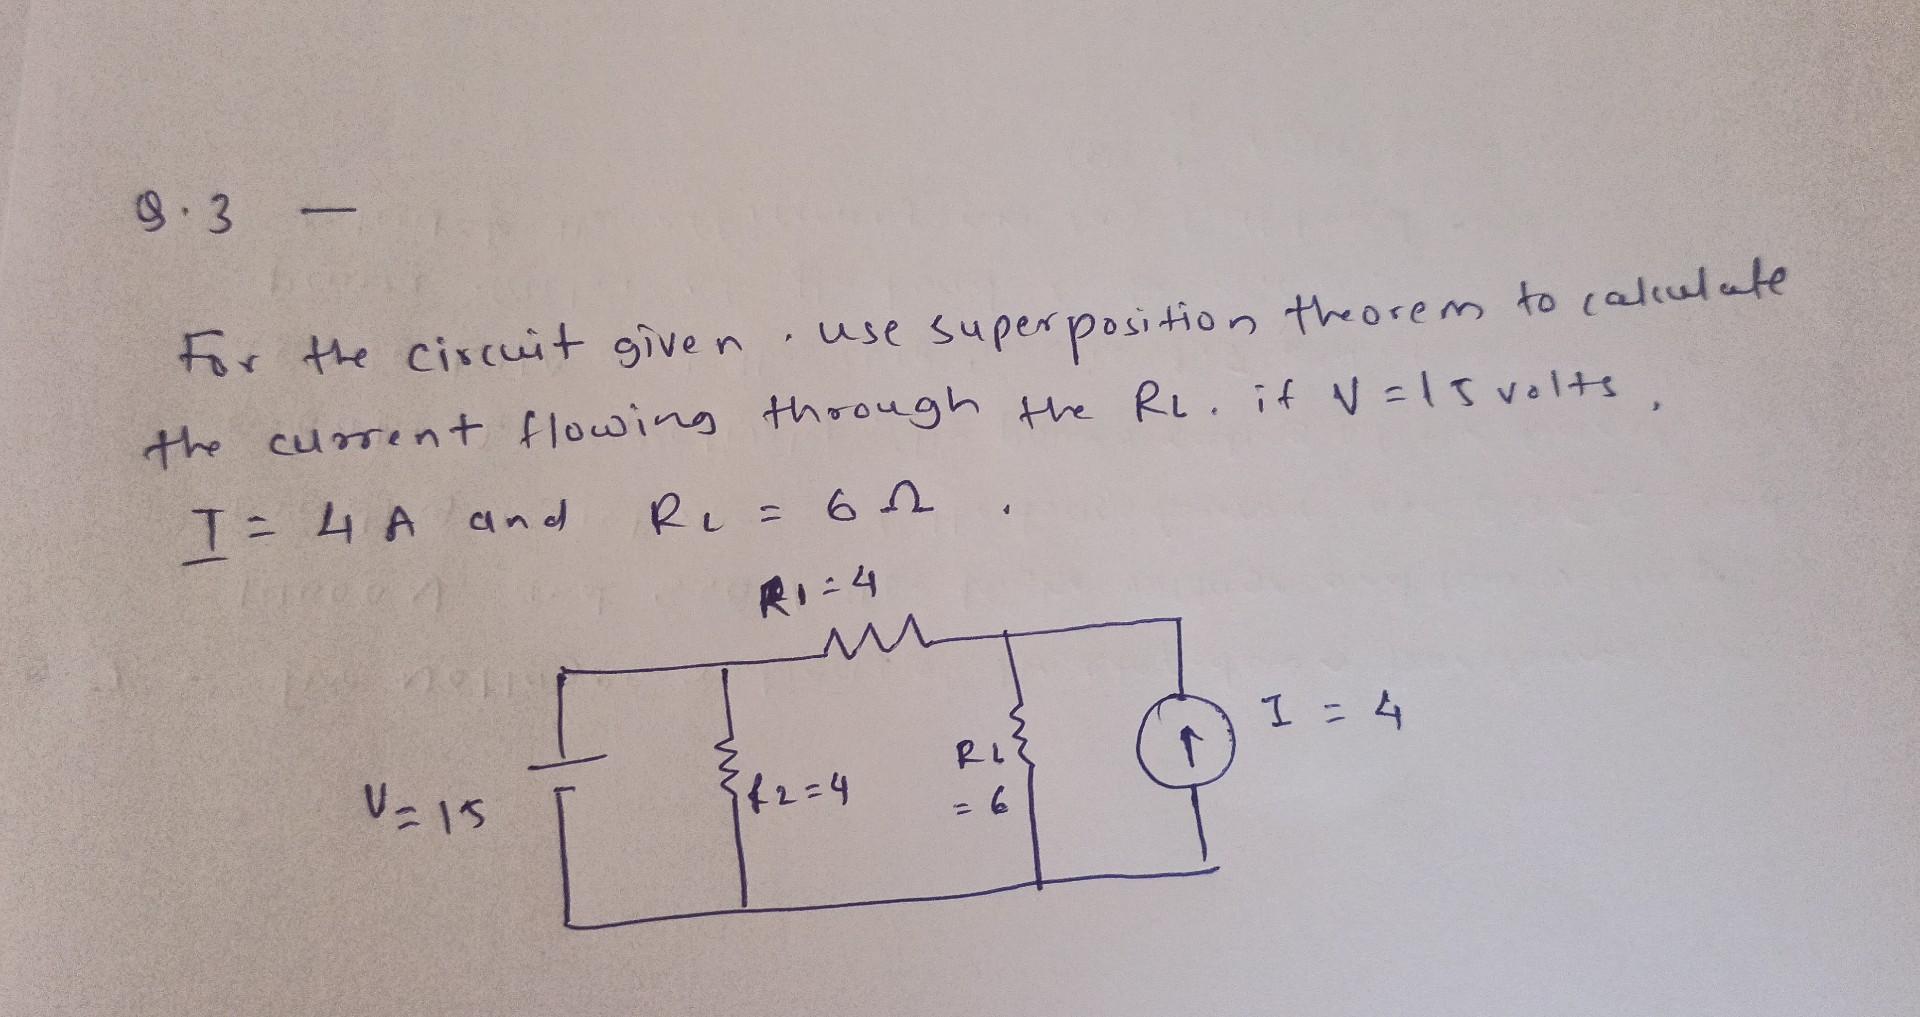 Q.3 —
For the circuit given . use superposition theorem to calculate
the current flowing through the RL . if V = 15 volts ,
I = 4 A and RL = 6 Ω .
R1 = 4
I = 4
RL
= 6
R2 = 4
V = 15